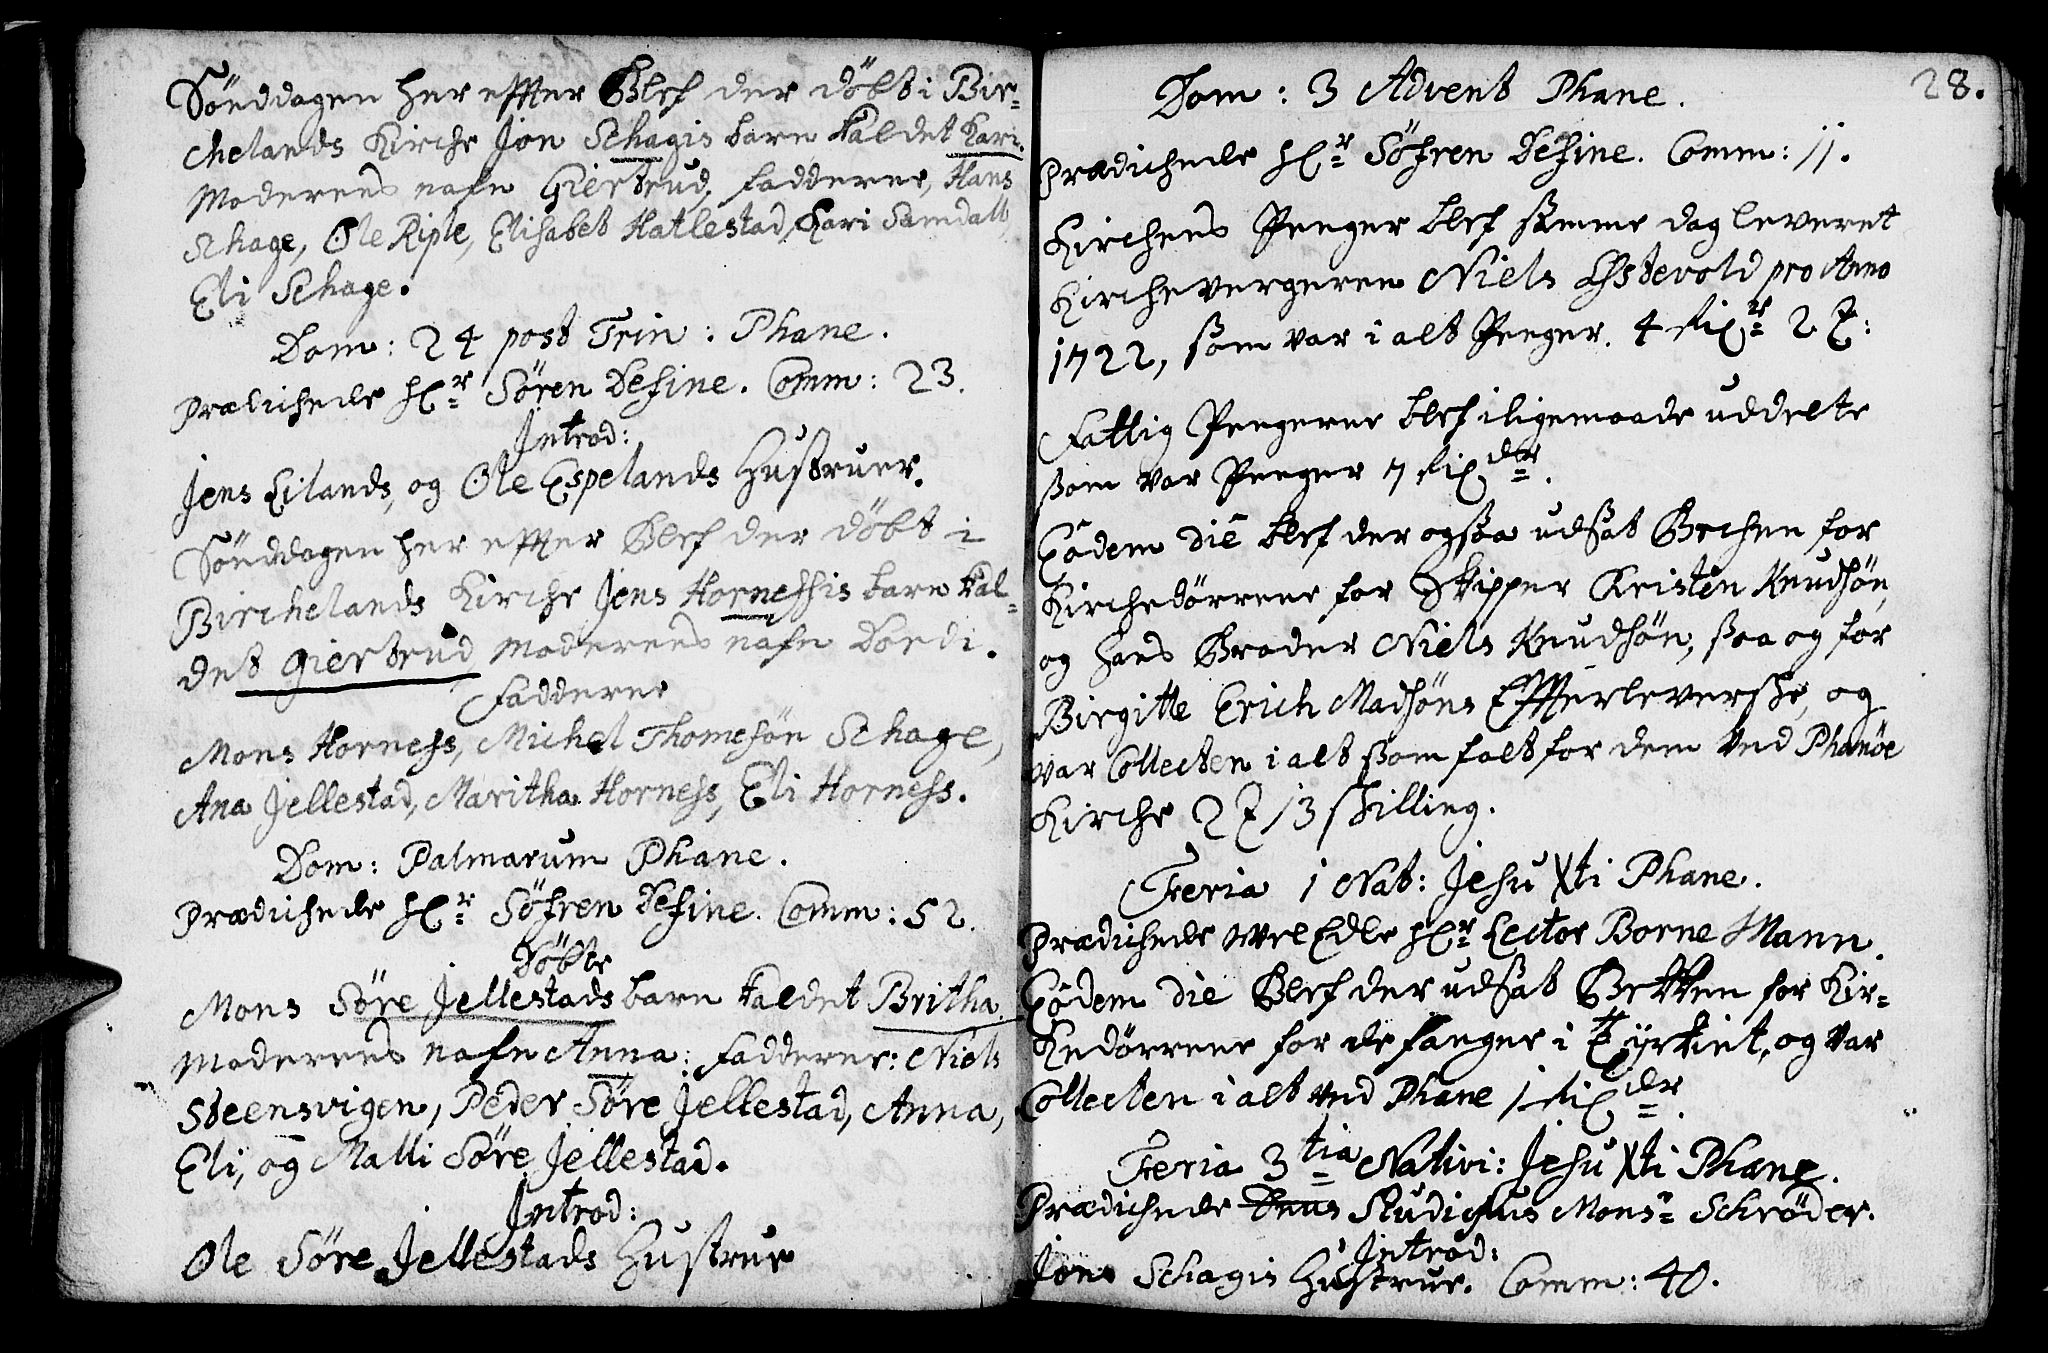 Sönddagen her effter Blef der döbt i Bir-
chelands Kirche Jon Schagis barn kaldet Kari.
Moderens nafn Giertrud, fadderne, Hans
Schage, Ole Riple, Elisabet Hatlestad, Kari Samdall
Eli Schage.
Dom: 24 post Trin: Phane.
Prædichede Hr Sören Define. Comm: 23.
Introd:
Jens Lilands, og Ole Espelands Hustruer.
Sönddagen her effter Blef der döbt i
Birchelands Kirche Jens Hornessis barn kal-
det Giertrud Moderens nafn Dordi.
Fadderne
Mons Horness, Michel Thomesön Schage,
Ana Jellestad, Maritha Horness, Eli Horness.
Dom: Palmarum Phane.
Prædichede Hr Söfren Define. Comm: 52.
Döbte
Mons Söre Jellestads barn kaldet Britha.
Moderens nafn Anna: fadderne: Niels
Steensvigen, Peder Söre Jellestad, Anna,
Eli, og Malli Söre Jellestad.
Introd:
Ole Söre Jellestads Hustrue
28.
Dom: 3 Advent Phane.
Prædichede Hr Söfren Define. Comm: 11.
Kirchens Penger blef samme dag leveret
Kirchevergeren Niels Östevold pro Anno
1722, som var i alt Penger. 4 Rixdr 2 :
Fattig Pengerne blef iligemaade uddelte
som var Penger 7 Rixdlr.
Eôdem die blef der ogsaa udsat Bechen for
Kirchedörrene for Skipper Kristen Knudsön,
og hans Broder Niels Knudsön, saa og for
Birgitte Erich Madsöns Effterleverske, og
var Collecten i alt som falt for dem ved Phanöe
Kirche 2 13 skilling.
Feria 1 Nat: Jesu Xti Phane.
Prædichede WelEdle Hr Lector Borne Mann.
Eôdem die Blef der udsat Bekken for Kir-
kedörrene for de fanger i Tÿrkiet, og var
Collecten i alt ved Phane 1 Rixdr.
Feria 3tia Nativi: Jesu Xti Phane.
Prædichede Studiosus Monsr Schröder.
Introd:
Jons Schagis Hustrue. Comm: 40.